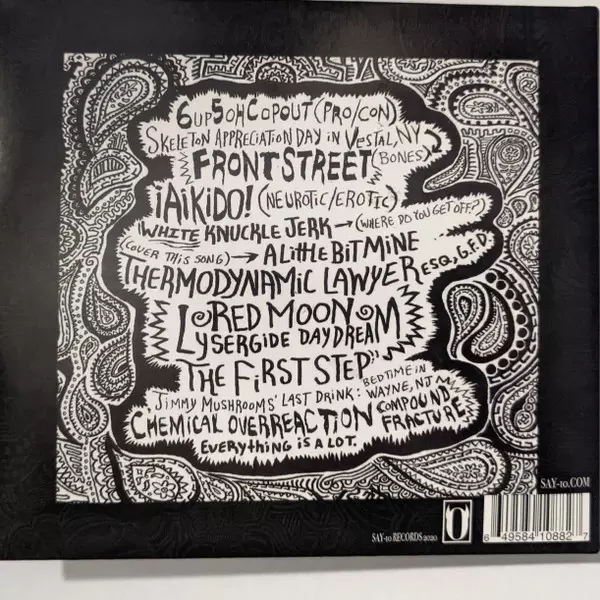 6UP 5OH COPOUT (PRO/CON)
SKELETON APPRECIATION DAY IN VESTAL, NY
FRONT STREET (BONES)
¡AIKIDO! (NEUROTIC/EROTIC)
WHITE KNUCKLE JERK → (WHERE DO YOU GET OFF?)
(COVER THIS SONG) → A LITTLE BIT MINE
THERMODYNAMIC LAWYER ESQ, G.F.D.
RED MOON
LYSERGIDE DAYDREAM
THE FIRST STEP"
JIMMY MUSHROOMS' LAST DRINK: BEDTIME IN WAYNE, NJ
CHEMICAL OVERREACTION COMPOUND FRACTURE
EVERYTHING IS A LOT.
SAY-10.COM
SAY-10 RECORDS 2020
6 49584 10882 7